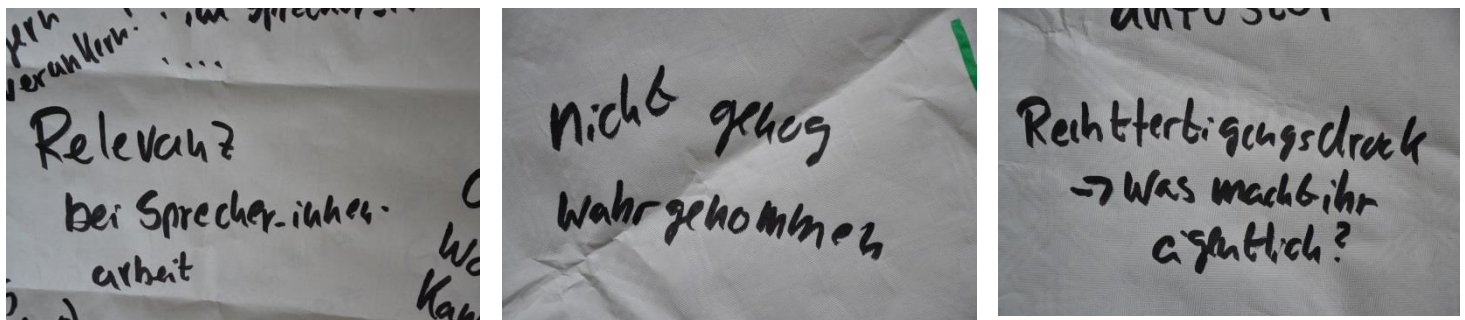 verankern!
....
Relevanz
bei Sprecher_innen-
arbeit
nicht genug
wahrgenommen
Rechtfertigungsdruck
→ Was macht ihr
eigentlich?